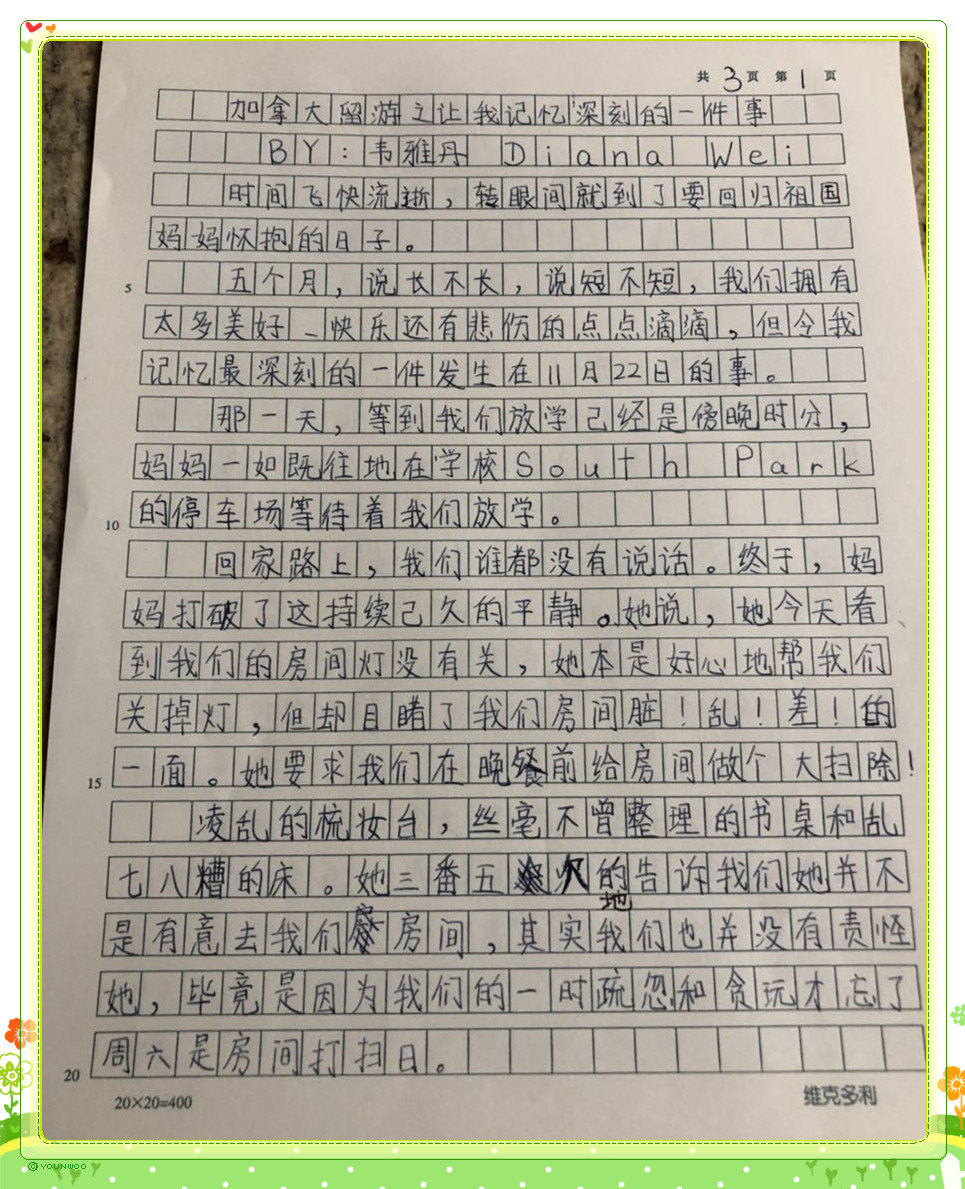 共3页 第1页
加拿大留游之让我记忆深刻的一件事
BY:韦雅丹 Diana Wei
时间飞快流逝，转眼间就到了要回归祖国
妈妈怀抱的日子。
5 五个月，说长不长，说短不短，我们拥有
太多美好、快乐还有悲伤的点点滴滴，但令我
记忆最深刻的一件发生在11月22日的事。
那一天，等到我们放学已经是傍晚时分，
妈妈一如既往地在学校South Park
10 的停车场等待着我们放学。
回家路上，我们谁都没有说话。终于，妈
妈打破了这持续已久的平静。她说，她今天看
到我们的房间灯没有关，她本是好心地帮我们
关掉灯，但却目睹了我们房间脏！乱！差！的
15 一面。她要求我们在晚餐前给房间做个大扫除！
凌乱的梳妆台，丝毫不曾整理的书桌和乱
七八糟的床。她三番五次的告诉我们她并不
地
是有意去我们房间，其实我们也并没有责怪
她，毕竟是因为我们的一时疏忽和贪玩才忘了
20 周六是房间打扫日。
20×20=400 维克多利
© YOUNWOO